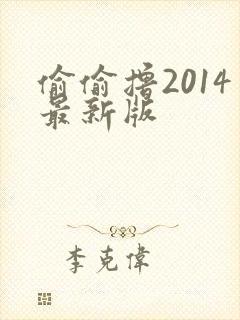 偷偷撸2014
最新版
李克偉